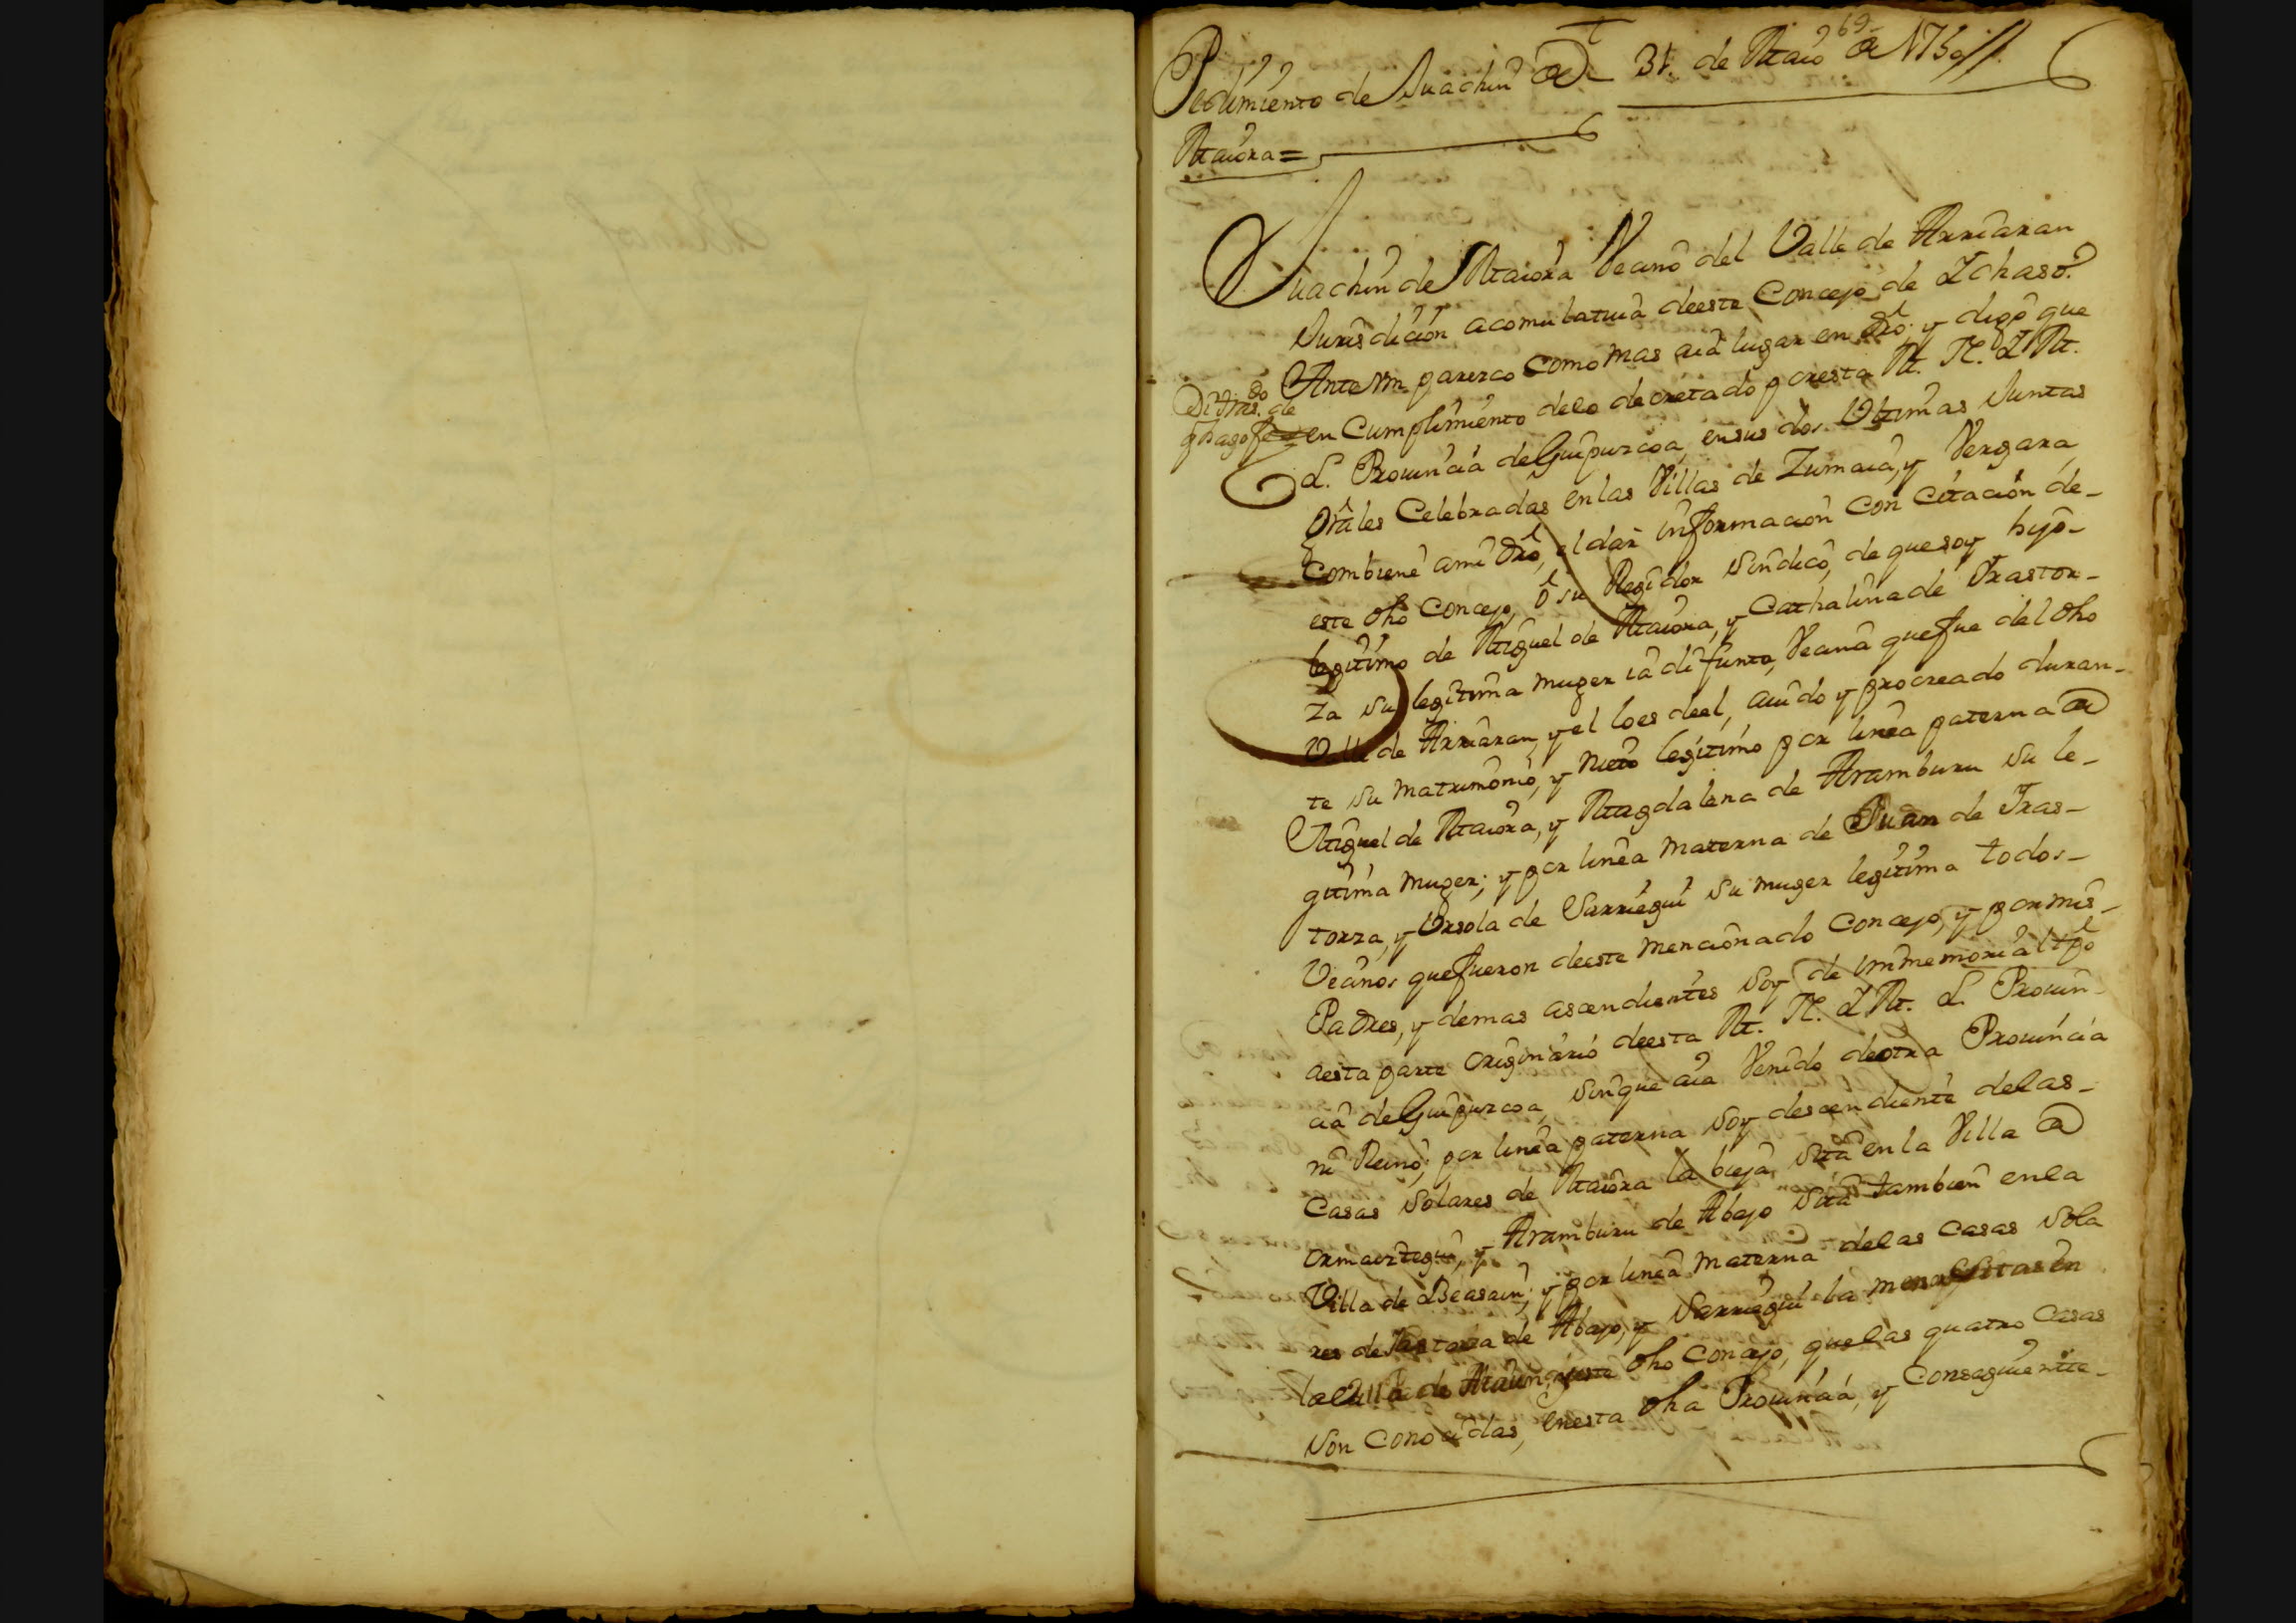 69
Pedimiento de Juachin de 31. de Maio de 1730
Maiora =
Juachin de Maiora Vecino del Valle de Arriaran
Jurisdicion acomulatiua deeste Concejo de Ichaso.
Ante Vm parezco como mas aia lugar en dro. y digo que
en Cumplimiento delo decretado poresta M. N. y M.
L. Prouincia de Guipuzcoa, ensus dos Vltimas Juntas
Grales Celebradas enlas Villas de Zumaia, y Vergara
Combiene ami dro, el dar informacion con citacion de-
este dho Concejo, ô su Regidor Sindico, de quesoy hijo-
legitimo de Miguel de Maiora, y Cathalina de Irastor-
za su legitima muger ia difunta, Vecina quefue del dho
Valle de Arriaran, y el loes deel, auido y procreado duran-
te su matrimonio, y nieto legitimo por linea paterna de
Miguel de Maiora, y Magdalena de Aramburu su le-
gitima muger; y por linea materna de Juan de Iras-
torza, y Vrsola de Sarriegui su muger legitima todos-
Vecinos quefueron deeste mencionado Concejo, y por mis-
Padres, y demas ascendientes soy de immemorial tpo
aesta parte originario deesta M. N. y M. L. Prouin-
cia de Guipuzcoa, sinque aia Venido deotra Prouincia
ni Reino; por linea paterna soy descendiente delas-
Casas solares de Maiora la bieja sita en la Villa de
ormaiztegui, y Aramburu de Abajo sita tambien enla
Villa de Beasain; y por linea materna delas Casas sola
res de Irastorza de Abajo, y Sarriegui la menor sitas en
la Villa de Ataun, yeste dho Concejo, quelas quatro Casas
son conocidas, enesta dha Prouincia, y Consaguiente-